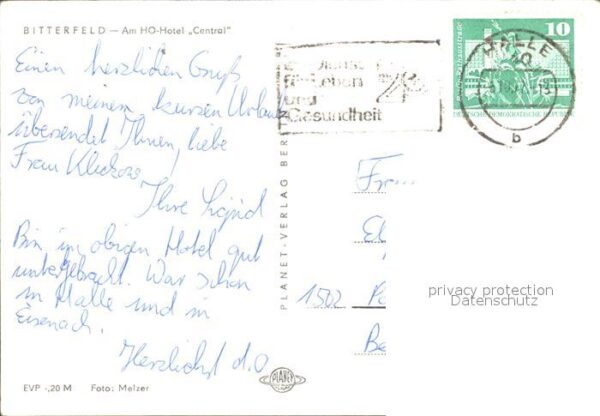 BITTERFELD — Am HO-Hotel „Central"
Einen herzlichen Gruß
von meinem kurzen Urlaub
übersendet Ihnen, liebe
Frau
Ihre Sigrid
Bin im obigen Hotel gut
untergebracht. War schon
in Halle und in
Eisenach.
Herzlichst d. O
EVP -,20 M Foto: Melzer
PLANET-VERLAG BERLIN
PLANET
für Leben
und
Gesundheit
HALLE
b
10
DEUTSCHE DEMOKRATISCHE REPUBLIK
Fr
1502
privacy protection
Datenschutz